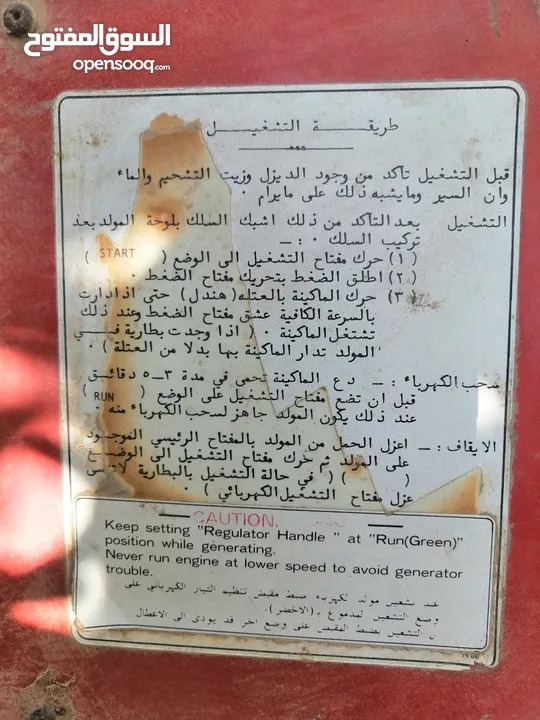 السوق المفتوح
opensooq.com
طريقة التشغيل
قبل التشغيل تأكد من وجود الديزل وزيت التشحيم والماء
وان السير ومايشبه ذلك على مايرام ٠
التشغيل بعد التأكد من ذلك اشبك السلك بلوحة المولد بعد
تركيب السلك ٠ : ــ
(١) حرك مفتاح التشغيل الى الوضع ( START )
(٢) اطلق الضغط بتحريك مفتاح الضغط ٠
(٣) حرك الماكينة بالعتله (هندل) حتى اذا دارت
بالسرعة الكافية عشق مفتاح الضغط وعند ذلك
تشتغل الماكينة ٠ ( اذا وجدت بطارية في
المولد تدار الماكينة بها بدلا من العتلة ) ٠
سحب الكهرباء : ــ دع الماكينة تحمى في مدة ٣ــ٥ دقائق
قبل ان تضع مفتاح التشغيل على الوضع ( RUN )
عند ذلك يكون المولد جاهز لسحب الكهرباء منه ٠
الايقاف : ــ اعزل الحمل من المولد بالمفتاح الرئيسي الموجود
على المولد ثم حرك مفتاح التشغيل الى الوضع
( ) ( في حالة التشغيل بالبطارية
عزل مفتاح التشغيل الكهربائي ) ٠
CAUTION
Keep setting "Regulator Handle " at "Run(Green)"
position while generating.
Never run engine at lower speed to avoid generator
trouble.
عند تشغيل مولد لكهرباء ضبط مقبض تنظيم التيار الكهربائي على
وضع التشغيل لمدموغ بـ(الاخضر).
التشغيل بضبط المقبض على وضع اخر قد يودى الى الاعطال